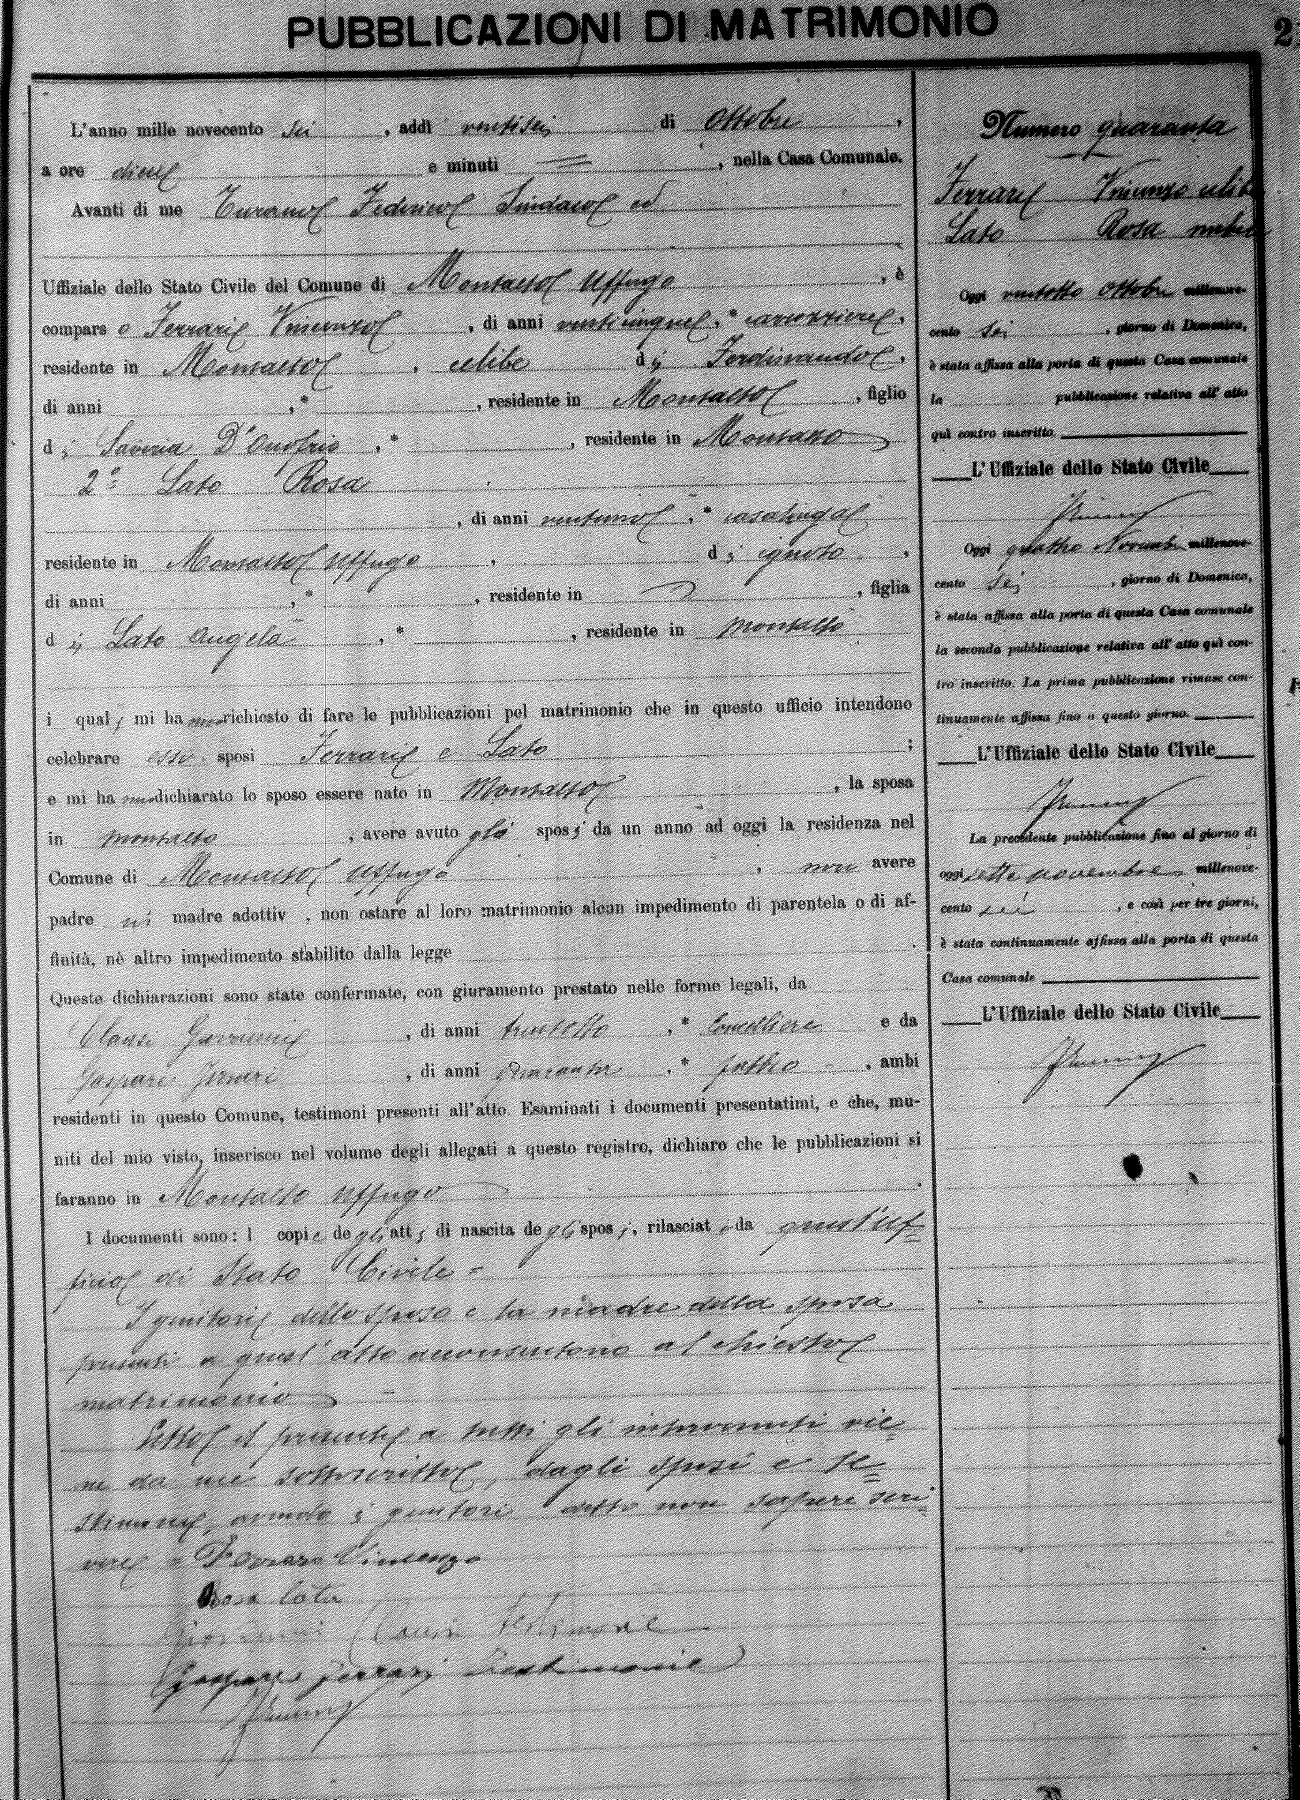 PUBBLICAZIONI DI MATRIMONIO
L'anno mille novecento sei, addì ventisei di Ottobre,
a ore dieci e minuti =, nella Casa Comunale.
Avanti di me Turano Federico Sindaco ed
Uffiziale dello Stato Civile del Comune di Montalto Uffugo, è
compars o Ferrari Vincenzo, di anni venticinque, * carrozziere,
residente in Montalto, celibe di Ferdinando,
di anni , * , residente in Montalto, figlio
di Saveria D'Onofrio, * , residente in Montalto
2° Lato Rosa
, di anni ventuno, * casalinga
residente in Montalto Uffugo, di ignoto,
di anni , * , residente in , figlia
di Lato Angela, * , residente in Montalto
i quali mi hanno richiesto di fare le pubblicazioni pel matrimonio che in questo ufficio intendono
celebrare essi sposi Ferrari e Lato ;
e mi hanno dichiarato lo sposo essere nato in Montalto, la sposa
in Montalto, avere avuto gli sposi da un anno ad oggi la residenza nel
Comune di Montalto Uffugo, non avere
padre nè madre adottiv , non ostare al loro matrimonio alcun impedimento di parentela o di af-
finità, nè altro impedimento stabilito dalla legge .
Queste dichiarazioni sono state confermate, con giuramento prestato nelle forme legali, da
Clausi Giovanni, di anni trentotto, * Cancelliere e da
Gaspare Ferrari, di anni quaranta, * fabbro, ambi
residenti in questo Comune, testimoni presenti all'atto. Esaminati i documenti presentatimi, e che, mu-
niti del mio visto, inserisco nel volume degli allegati a questo registro, dichiaro che le pubblicazioni si
faranno in Montalto Uffugo .
I documenti sono: l copie degli atti di nascita degli sposi, rilasciate da quest'uf=
ficio di Stato Civile =
I genitori dello sposo e la madre della sposa
presenti a quest'atto acconsentono al chiesto
matrimonio
Letto il presente a tutti gli intervenuti vie=
ne da me sottoscritto, dagli sposi e te=
stimoni, avendo i genitori detto non sapere scri=
vere = Ferraro Vincenzo
Rosa Lato
Giovanni Clausi testimone
Gaspare Ferrari Testimonie
Numero quaranta
Ferrari Vincenzo celibe
Lato Rosa nubile
Oggi ventotto Ottobre millenove-
cento sei, giorno di Domenica,
è stata affissa alla porta di questa Casa comunale
la pubblicazione relativa all'atto
quì contro inscritto.
L'Uffiziale dello Stato Civile
Oggi quattro Novembre millenove-
cento sei, giorno di Domenica,
è stata affissa alla porta di questa Casa comunale
la seconda pubblicazione relativa all'atto quì con-
tro inscritto. La prima pubblicazione rimase con-
tinuamente affissa fino a questo giorno.
L'Uffiziale dello Stato Civile
La precedente pubblicazione fino al giorno di
oggi sette novembre millenove-
cento sei, e così per tre giorni,
è stata continuamente affissa alla porta di questa
Casa comunale
L'Uffiziale dello Stato Civile